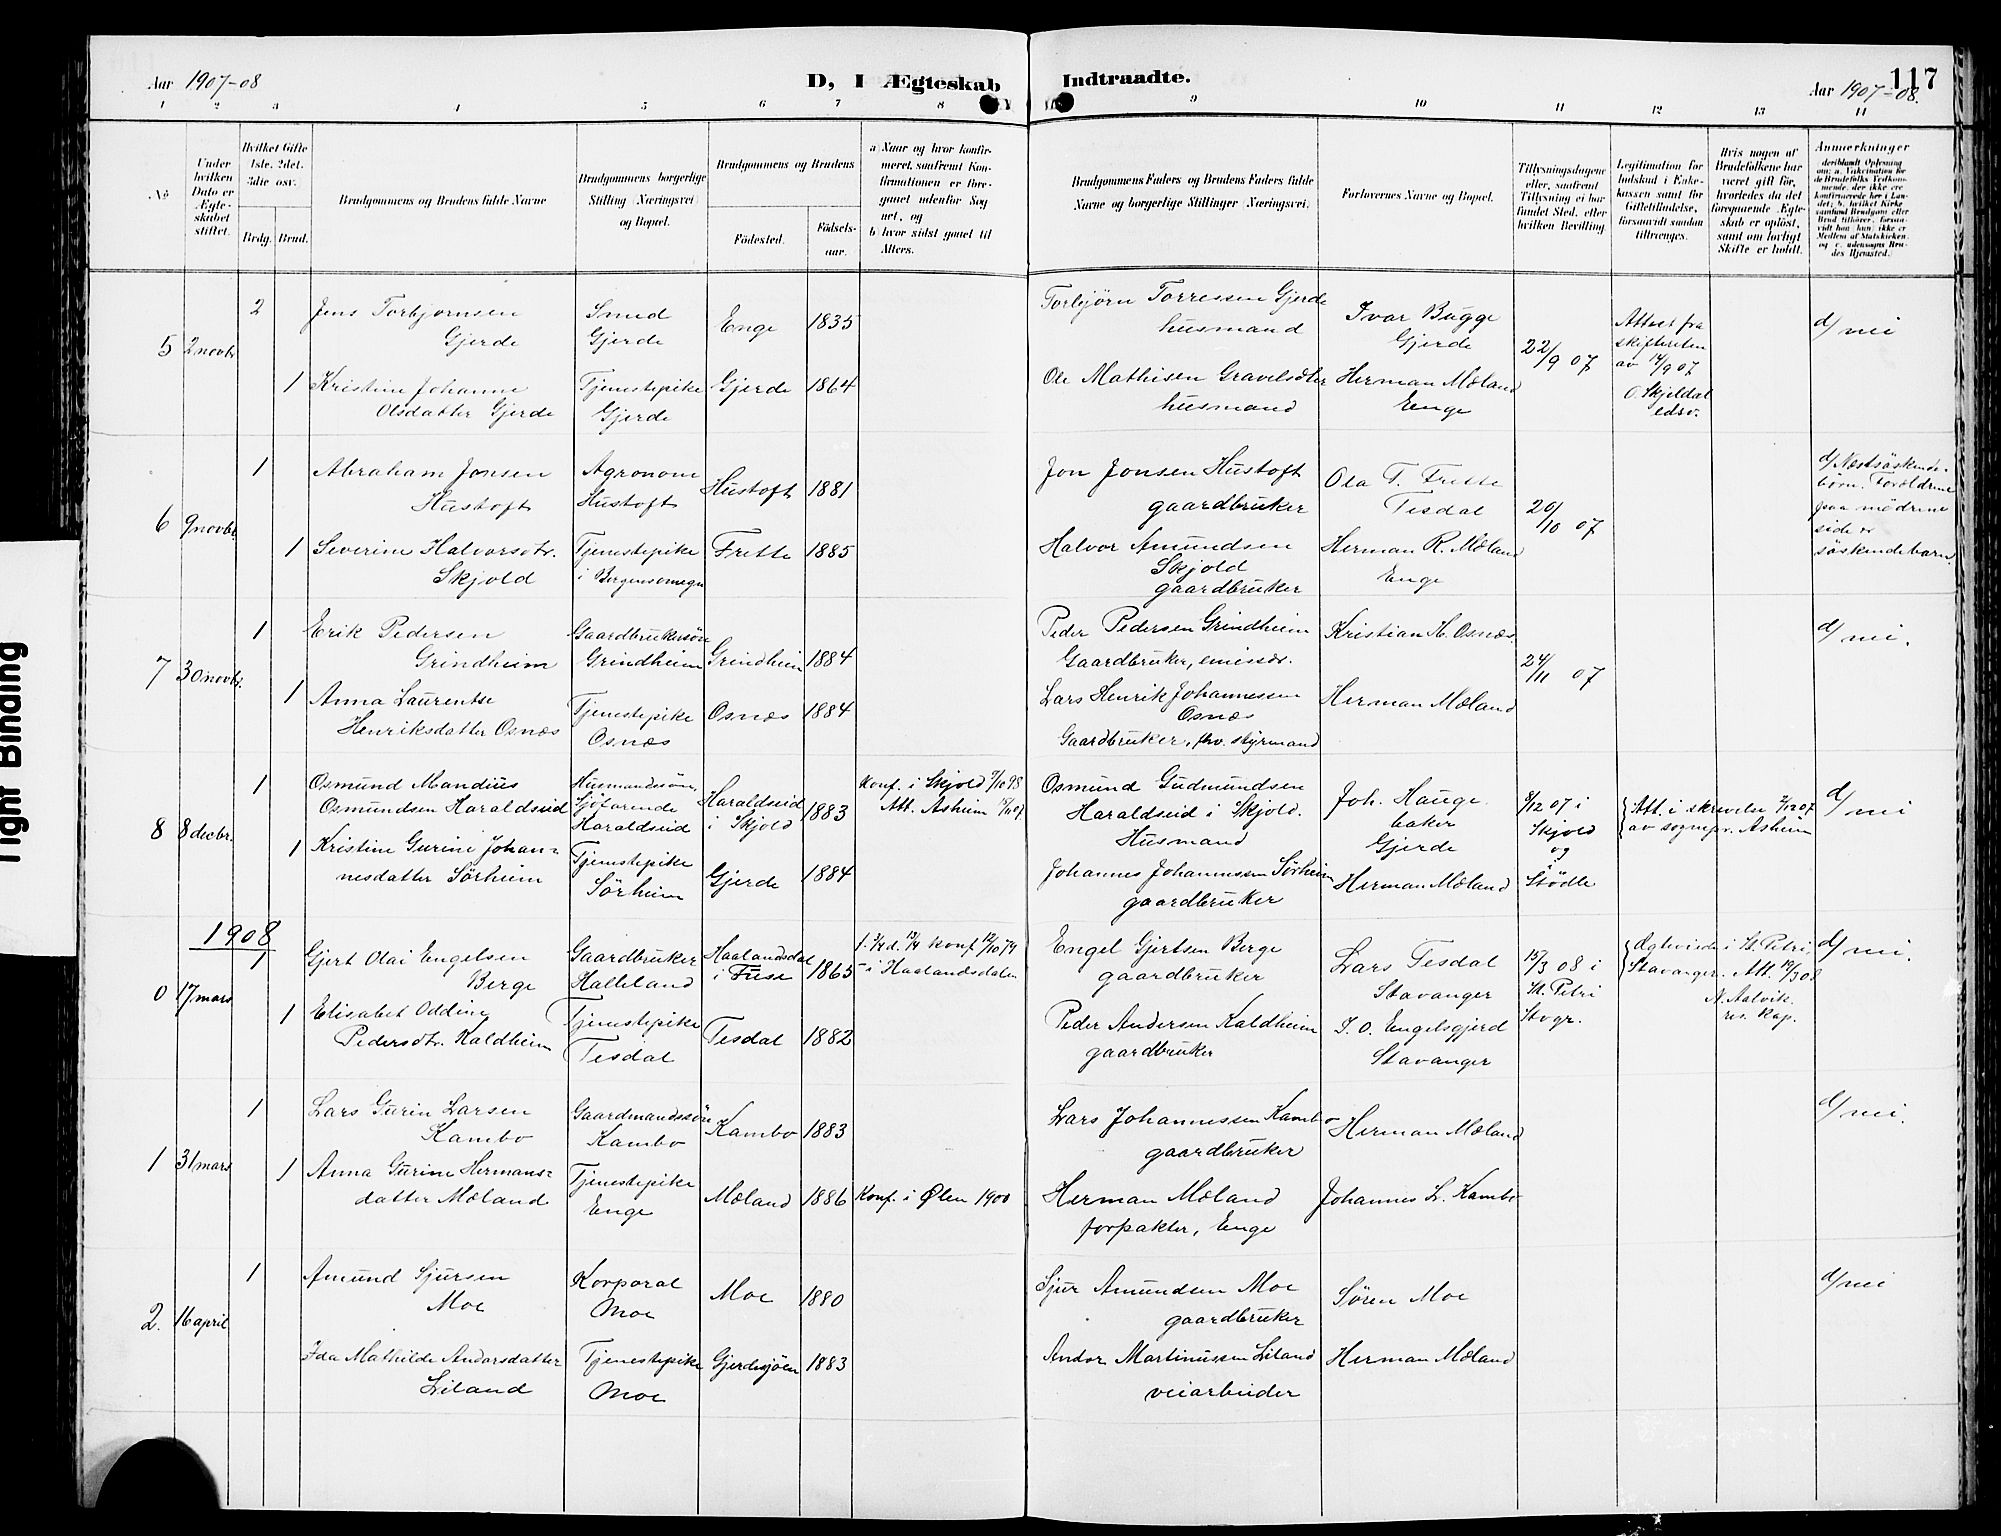 Aar 1907-08
D, I Ægteskab
Indtraadte.
Aar 1907-08.
117
1 2 3 4 5 6 7 8 9 10 11 12 13 14
No
Under hvilken Dato er Ægteskabet stiftet.
Hvilket Gifte 1ste. 2det. 3die osv.
Brdg. Brud.
Brudgommens og Brudens fulde Navne
Brudgommens borgerlige Stilling (Næringsvei) og Bopæl.
Brudgommens og Brudens
Födested.
Födselsaar.
a) Naar og hvor konfirmeret, saafremt Konfirmationen er foregaaet udenfor Sognet, og
b) hvor sidst gaaet til Alters.
Brudgommens Faders og Brudens Faders fulde Navne og borgerlige Stillinger (Næringsvei).
Forlovernes Navne og Bopæl.
Tillysningsdagene eller, saafremt Tillysning ei har fundet Sted, efter hvilken Bevilling.
Legitimation for Indskud i Enkekassen samt for Giftetilladelse, forsaavidt saadan tiltrænges.
Hvis nogen af Brudefolkene har været gift før, hvorledes da det foregaaende Ægteskab er oplöst, samt om lovligt Skifte er holdt.
Anmærkninger
5
2 novbr
2
Jens Torbjørnsen
Gjerde
Smed
Gjerde
Enge
1835
Torbjørn Torressen Gjerde
husmand
Ivar Bugge
Gjerde
22/9 07
Attest fra
skifteretten
av 14/9 07
O. Skjeldal
edsv.
d/ nei
1
Kristine Johanne
Olsdatter Gjerde
Tjenestepike
Gjerde
Gjerde
1864
Ole Mathisen Gravelsæter
husmand
Herman Mæland
Enge
6
9 novbr
1
Abraham Jonsen
Hustoft
Agronom
Hustoft
Hustoft
1881
Jon Jonsen Hustoft
gaardbruker
Ola T. Frette
Tesdal
20/10 07
d/ Næstsöskende-
børn. Forældrene
paa mødrene
side er
söskendebarn.
1
Severine Halvorsdtr.
Skjold
Tjenestepike
i Bergensomegn
Frette
1885
Halvor Amundsen
Skjold
gaardbruker
Herman R. Mæland
Enge
7
30 novbr.
1
Erik Pedersen
Grindheim
Gaardbrukersön
Grindheim
Grindheim
1884
Peder Pedersen Grindheim
Gaardbruker, emissær.
Kristian H. Osnæs.
24/11 07
d/ nei.
1
Anna Laurentse
Henriksdatter Osnæs
Tjenestepike
Osnæs
Osnæs
1884
Lars Henrik Johannessen
Osnæs
Gaardbruker, fhv. styrmand
Herman Mæland
8
8 decbr.
1
Osmund Mandius
Osmundsen Haraldseid
Husmandssön,
Sjöfarende
Haraldseid
Haraldseid
i Skjold
1883
Konf. i Skjold 9/10 98
Att. Asheim
Osmund Gudmundsen
Haraldseid i Skjold.
Husmand
Joh. Hauge
baker
Gjerde
8/12 07 i
Skjold
og
Stødle
Att. i skrivelse 7/12 07
av sognepr. Asheim
d/ nei
1
Kristine Gurine Johan=
nesdatter Sörheim
Tjenestepike
Sörheim
Gjerde
1884
Johannes Johannessen Sörheim
gaardbruker
Herman Mæland
1908
0
17 mars
1
Gjert Olai Engelsen
Berge
Gaardbruker
Halleland
Haalandsdal
i Fuse
1865
konf. 12/10 79
i Haalandsdalen
Engel Gjertsen Berge
gaardbruker
Lars Tesdal
Stavanger
15/3 08 i
St. Petri
Stvgr.
Ægteviede i St. Petri,
Stavanger. Att. 19/3 08
N. Aalvik.
res. kap.
d/ nei.
1
Elisabet Oddine
Pedersdtr. Kaldheim
Tjenestepike
Tesdal
Tesdal
1882
Peder Andersen Kaldheim
gaardbruker
J. O. Engelsgjerd
Stavanger
1
31 mars
1
Lars Gurin Larsen
Kambo
Gaardmandssön
Kambo
Kambo
1883
Lars Johannessen Kambo
gaardbruker
Herman Mæland
d/ nei.
1
Anna Gurine Hermans=
datter Mæland
Tjenestepike
Enge
Mæland
1886
Konf. i Ølen 1900
Herman Mæland
forpakter, Enge
Johannes L. Kambo
2.
16 april
1
Amund Sjursen
Moe
Korporal
Moe
Moe
1880
Sjur Amundsen Moe
gaardbruker
Søren Moe
d/ nei
Ida Mathilde Andorsdatter
Liland
Tjenestepike
Moe
Gjerdesjöen
1883
Andor Martinussen Liland
veiarbeider
Herman Mæland
Tight Binding